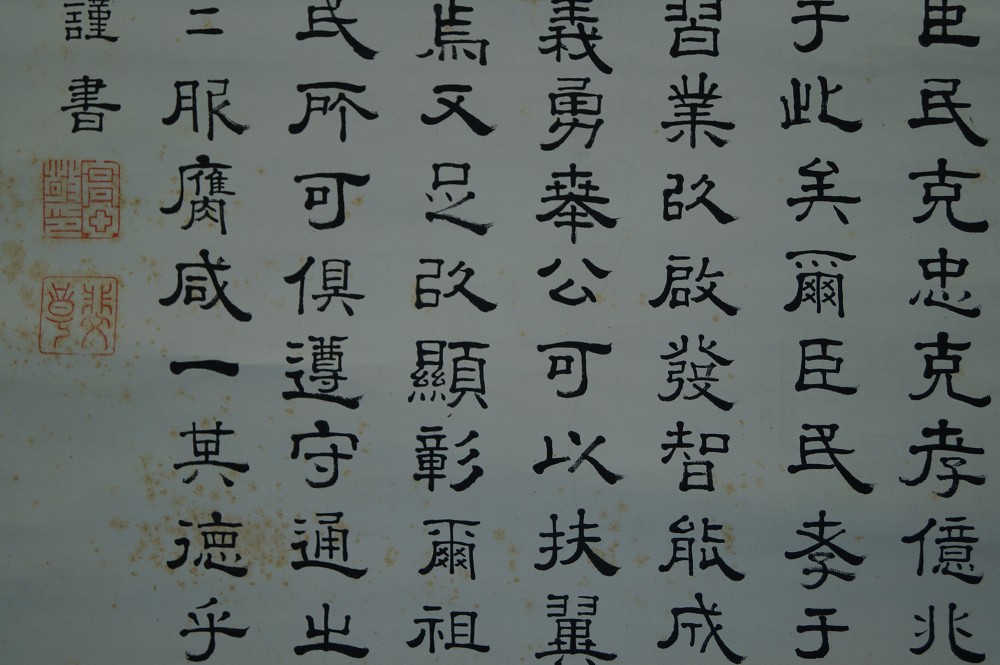 臣民克忠克孝億兆
于此矣爾臣民孝于
習業以啟發智能成
義勇奉公可以扶翼
焉又足以顯彰爾祖
民所可俱遵守通之
二服膺咸一其德乎
謹書